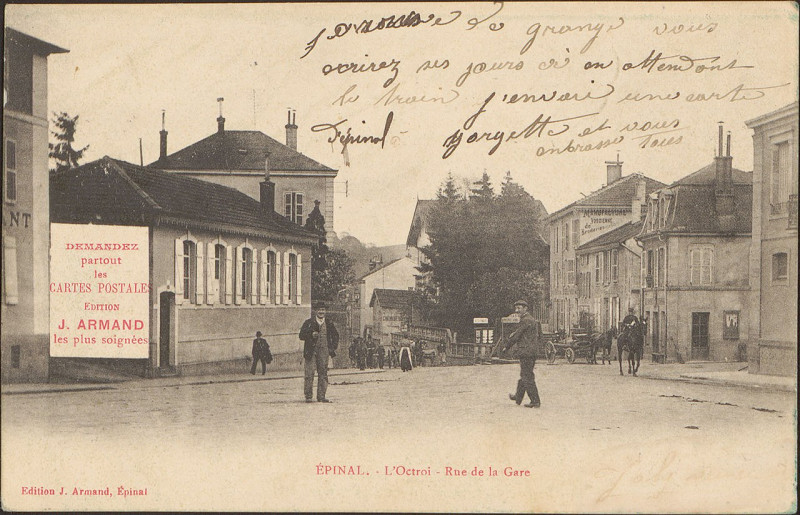 de grange vous
ecrirez ses jours ci en attendent
le train j'envoie une carte
d'épinal
Margette et vous
embrasse tous
ANT
DEMANDEZ
partout
les
CARTES POSTALES
EDITION
J. ARMAND
les plus soignées
ÉPINAL. - L'Octroi - Rue de la Gare
Edition J. Armand, Épinal